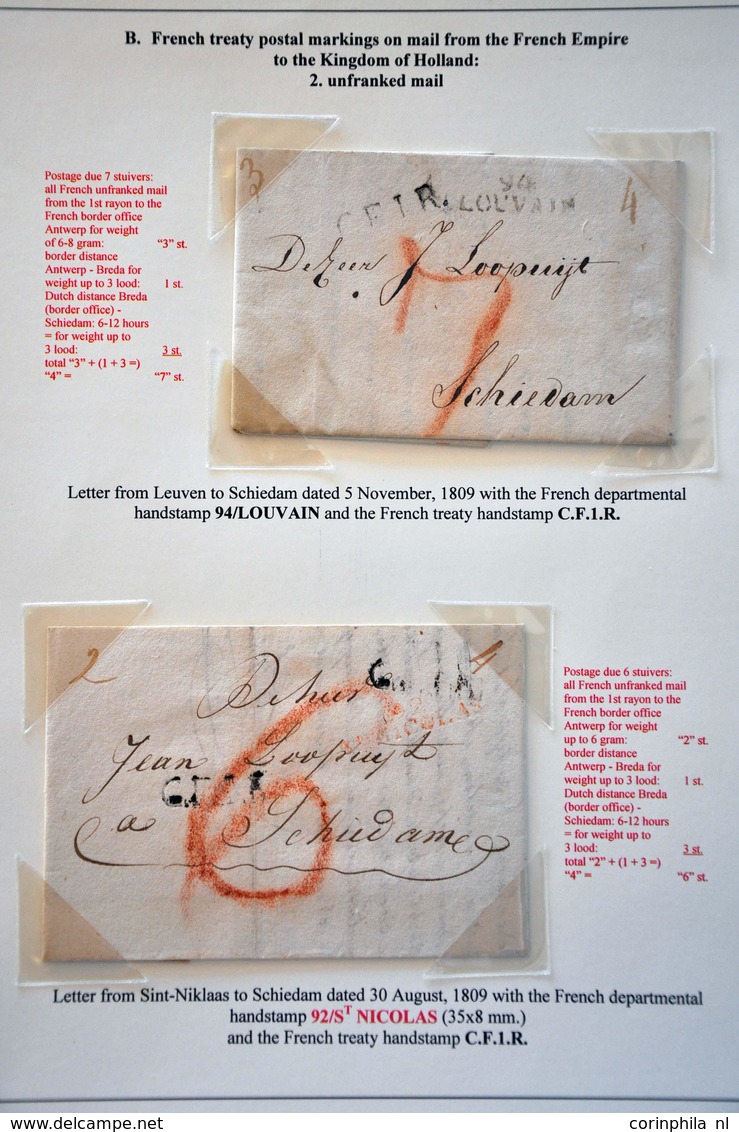 B. French treaty postal markings on mail from the French Empire
to the Kingdom of Holland:
2. unfranked mail
Postage due 7 stuivers:
all French unfranked mail
from the 1st rayon to the
French border office
Antwerp for weight
of 6-8 gram: “3” st.
border distance
Antwerp - Breda for
weight up to 3 lood: 1 st.
Dutch distance Breda
(border office) -
Schiedam: 6-12 hours
= for weight up to
3 lood: 3 st.
total “3” + (1 + 3 =)
“4” = “7” st.
3
C.F.1.R.
94
LOUVAIN
4
De Heer J Loopuijt
7
Schiedam
Letter from Leuven to Schiedam dated 5 November, 1809 with the French departmental
handstamp 94/LOUVAIN and the French treaty handstamp C.F.1.R.
2
4
De heer
NICOLAS
Jean Loopuijt
C.F.1.R.
6
a Schiedam
Postage due 6 stuivers:
all French unfranked mail
from the 1st rayon to the
French border office
Antwerp for weight
up to 6 gram: “2” st.
border distance
Antwerp - Breda for
weight up to 3 lood: 1 st.
Dutch distance Breda
(border office) -
Schiedam: 6-12 hours
= for weight up to
3 lood: 3 st.
total “2” + (1 + 3 =)
“4” = “6” st.
Letter from Sint-Niklaas to Schiedam dated 30 August, 1809 with the French departmental
handstamp 92/Sᵀ NICOLAS (35x8 mm.)
and the French treaty handstamp C.F.1.R.
www.delcampe.net
corinphila nl